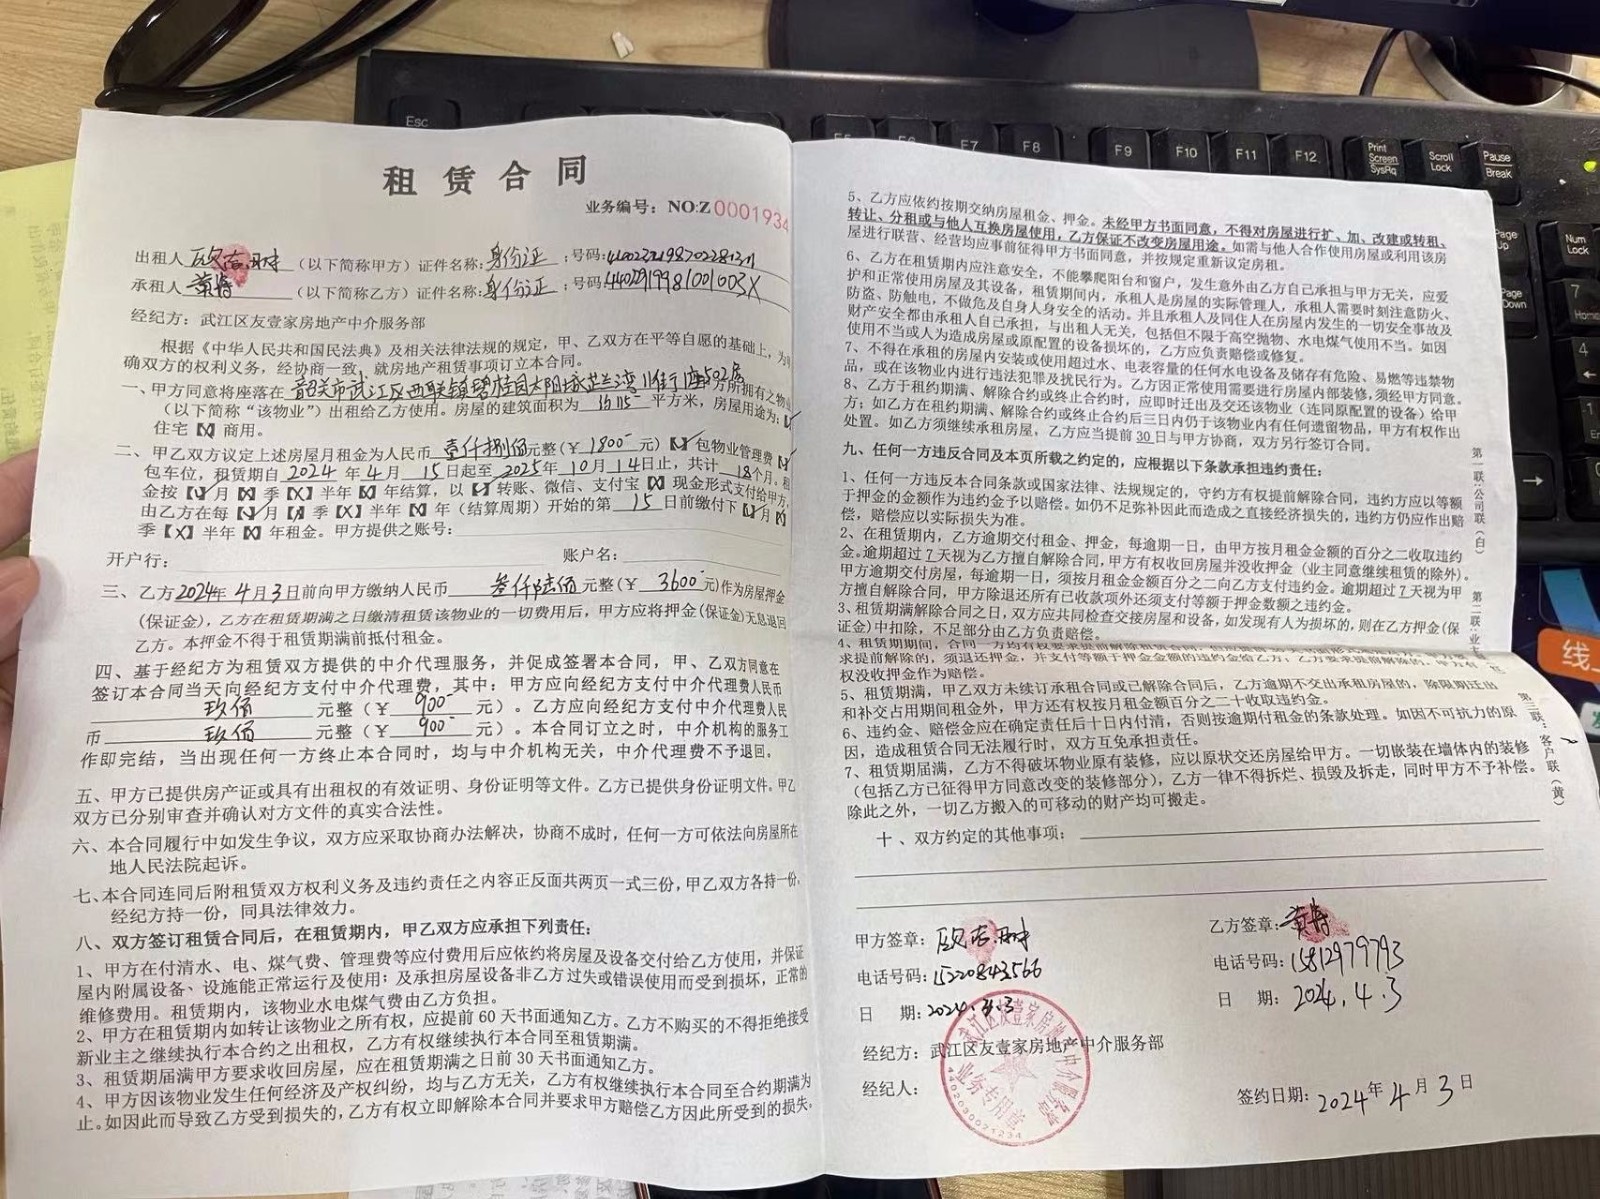 租赁合同
业务编号：NO:Z 0001934
出租人 （以下简称甲方）证件名称：身份证 ；号码：
承租人 黄 （以下简称乙方）证件名称：身份证 ；号码：4402919981001003X
经纪方：武江区友壹家房地产中介服务部
根据《中华人民共和国民法典》及相关法律法规的规定，甲、乙双方在平等自愿的基础上，为明
确双方的权利义务，经协商一致，就房地产租赁事项订立本合同。
一、甲方同意将座落在 韶关市武江区西联镇碧桂园太阳城芷兰湾 街1座502房 方所拥有之物业
（以下简称“该物业”）出租给乙方使用。房屋的建筑面积为 平方米，房屋用途为：【✓】
住宅【X】商用。
二、甲乙双方议定上述房屋月租金为人民币 壹仟捌佰 元整（￥ 1800 元）【✓】包物业管理费【✓】
包车位，租赁期自 2024 年 4 月 15 日起至 2025 年 10 月 14 日止，共计 18 个月。租
金按【✓】月【X】季【X】半年【X】年结算，以【✓】转账、微信、支付宝【X】现金形式支付给甲方，
由乙方在每【✓】月【X】季【X】半年【X】年（结算周期）开始的第 15 日前缴付下【✓】月【X】
季【X】半年【X】年租金。甲方提供之账号：
开户行： 账户名：
三、乙方 2024年 4 月 3 日前向甲方缴纳人民币 叁仟陆佰 元整（￥ 3600 元）作为房屋押金
（保证金），乙方在租赁期满之日缴清租赁该物业的一切费用后，甲方应将押金（保证金）无息退回
乙方。本押金不得于租赁期满前抵付租金。
四、基于经纪方为租赁双方提供的中介代理服务，并促成签署本合同，甲、乙双方同意在
签订本合同当天向经纪方支付中介代理费，其中：甲方应向经纪方支付中介代理费人民币
玖佰 元整（￥ 900 元）。乙方应向经纪方支付中介代理费人民
币 玖佰 元整（￥ 900 元）。本合同订立之时，中介机构的服务工
作即完结，当出现任何一方终止本合同时，均与中介机构无关，中介代理费不予退回。
五、甲方已提供房产证或具有出租权的有效证明、身份证明等文件。乙方已提供身份证明文件。甲乙
双方已分别审查并确认对方文件的真实合法性。
六、本合同履行中如发生争议，双方应采取协商办法解决，协商不成时，任何一方可依法向房屋所在
地人民法院起诉。
七、本合同连同后附租赁双方权利义务及违约责任之内容正反面共两页一式三份，甲乙双方各持一份，
经纪方持一份，同具法律效力。
八、双方签订租赁合同后，在租赁期内，甲乙双方应承担下列责任：
1、甲方在付清水、电、煤气费、管理费等应付费用后应依约将房屋及设备交付给乙方使用，并保证
屋内附属设备、设施能正常运行及使用；及承担房屋设备非乙方过失或错误使用而受到损坏，正常的
维修费用。租赁期内，该物业水电煤气费由乙方负担。
2、甲方在租赁期内如转让该物业之所有权，应提前 60 天书面通知乙方。乙方不购买的不得拒绝接受
新业主之继续执行本合约之出租权，乙方有权继续执行本合同至租赁期满。
3、租赁期届满甲方要求收回房屋，应在租赁期满之日前 30 天书面通知乙方。
4、甲方因该物业发生任何经济及产权纠纷，均与乙方无关，乙方有权继续执行本合同至合约期满为
止。如因此而导致乙方受到损失的，乙方有权立即解除本合同并要求甲方赔偿乙方因此所受到的损失。
5、乙方应依约按期交纳房屋租金、押金。未经甲方书面同意，不得对房屋进行扩、加、改建或转租、
转让、分租或与他人互换房屋使用，乙方保证不改变房屋用途。如需与他人合作使用房屋或利用该房
屋进行联营、经营均应事前征得甲方书面同意，并按规定重新议定房租。
6、乙方在租赁期内应注意安全，不能攀爬阳台和窗户，发生意外由乙方自己承担与甲方无关，应爱
护和正常使用房屋及其设备，租赁期间内，承租人是房屋的实际管理人，承租人需要时刻注意防火、
防盗、防触电，不做危及自身人身安全的活动。并且承租人及同住人在房屋内发生的一切安全事故及
财产安全都由承租人自己承担，与出租人无关，包括但不限于高空抛物、水电煤气使用不当。如因
使用不当或人为造成房屋或原配置的设备损坏的，乙方应负责赔偿或修复。
7、不得在承租的房屋内安装或使用超过水、电表容量的任何水电设备及储存有危险、易燃等违禁物
品，或在该物业内进行违法犯罪及扰民行为。乙方因正常使用需要进行房屋内部装修，须经甲方同意。
8、乙方于租约期满、解除合约或终止合约时，应即时迁出及交还该物业（连同原配置的设备）给甲
方；如乙方在租约期满、解除合约或终止合约后三日内仍于该物业内有任何遗留物品，甲方有权作出
处置。如乙方须继续承租房屋，乙方应当提前 30 日与甲方协商，双方另行签订合同。
九、任何一方违反合同及本页所载之约定的，应根据以下条款承担违约责任：
1、任何一方违反本合同条款或国家法律、法规规定的，守约方有权提前解除合同，违约方应以等额
于押金的金额作为违约金予以赔偿。如仍不足弥补因此而造成之直接经济损失的，违约方仍应作出赔
偿，赔偿应以实际损失为准。
2、在租赁期内，乙方逾期交付租金、押金，每逾期一日，由甲方按月租金金额的百分之二收取违约
金。逾期超过 7 天视为乙方擅自解除合同，甲方有权收回房屋并没收押金（业主同意继续租赁的除外）。
甲方逾期交付房屋，每逾期一日，须按月租金金额百分之二向乙方支付违约金。逾期超过 7 天视为甲
方擅自解除合同，甲方除退还所有已收款项外还须支付等额于押金数额之违约金。
3、租赁期满解除合同之日，双方应共同检查交接房屋和设备，如发现有人为损坏的，则在乙方押金（保
证金）中扣除，不足部分由乙方负责赔偿。
4、租赁期期间，合同一方均有权要求提前解除租赁合同，
求提前解除的，须退还押金，并支付等额于押金金额的违约金给乙方，乙方要求提前解除的，甲方有
权没收押金作为赔偿。
5、租赁期满，甲乙双方未续订承租合同或已解除合同后，乙方逾期不交出承租房屋的，除限期迁出
和补交占用期间租金外，甲方还有权按月租金百分之二十收取违约金。
6、违约金、赔偿金应在确定责任后十日内付清，否则按逾期付租金的条款处理。如因不可抗力的原
因，造成租赁合同无法履行时，双方互免承担责任。
7、租赁期届满，乙方不得破坏物业原有装修，应以原状交还房屋给甲方。一切嵌装在墙体内的装修
（包括乙方已征得甲方同意改变的装修部分），乙方一律不得拆烂、损毁及拆走，同时甲方不予补偿。
除此之外，一切乙方搬入的可移动的财产均可搬走。
十、双方约定的其他事项：
甲方签章：
电话号码：15220843566
日 期：2024.4.3
乙方签章：黄
电话号码：15812979793
日 期：2024.4.3
经纪方：武江区友壹家房地产中介服务部
经纪人：
签约日期：2024年 4 月 3 日
武江区友壹家房地产中介服务部
业务专用章
第一联：公司联（白）
第二联：业主
第三联：客户联（黄）
Esc
F5
F6
F7
F8
F9
F10
F11
F12
Print Screen SysRq
Scroll Lock
Pause Break
Page Up
Num Lock
Page Down
7
Home
4
1
线